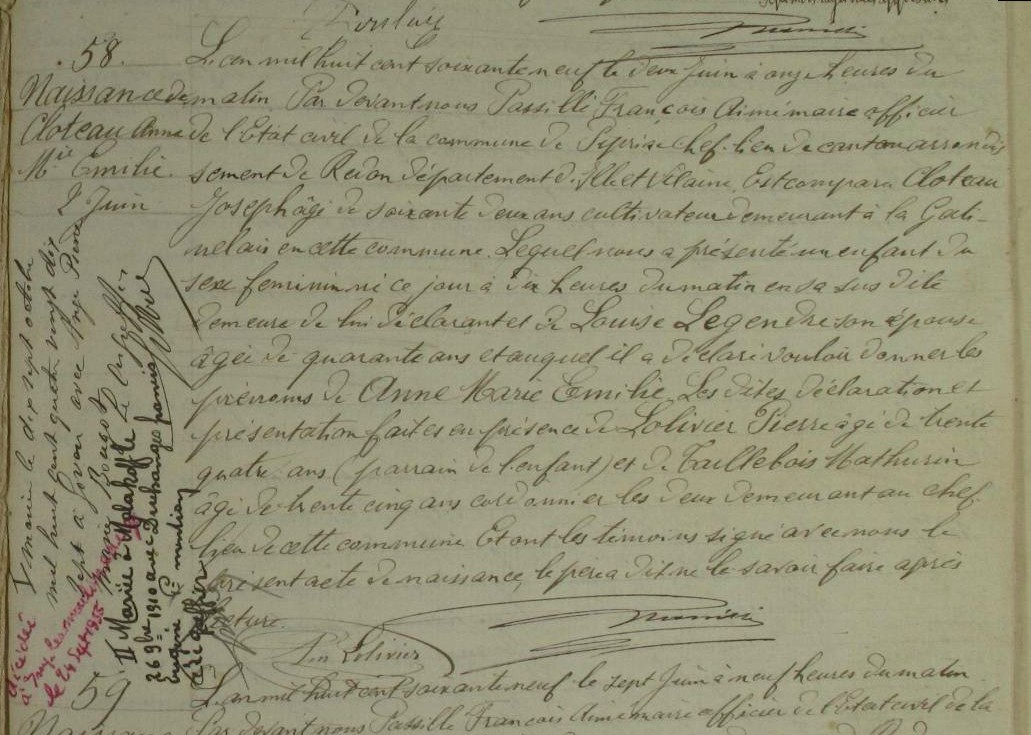 58.
Naissance de
Cloteau Anne
Mie Emilie.
2 Juin
L'an mil huit cent soixante neuf le deux Juin à onze heures du
matin, Par devant nous Passillé François Aimé maire officier
de l'Etat civil de la commune de Pipriac chef-lieu de canton arrondis
sement de Redon département d'Ille et Vilaine, Est comparu Cloteau
Joseph âgé de soixante deux ans cultivateur demeurant à la Gati-
nelais en cette commune. Lequel nous a présenté un enfant du
sexe feminin né ce jour à dix heures du matin en sa sus dite
demeure de lui déclarant et de Louise Legendre son épouse
âgée de quarante ans et auquel il a déclaré vouloir donner les
prénoms de Anne Marie Emilie. Les dites déclaration et
présentation faites en présence de Lolivier Pierre âgé de trente
quatre ans (parrain de l'enfant) et de Taillebois Mathurin
âgé de trente cinq ans cordonnier les deux demeurant au chef-
lieu de cette commune. Et ont les témoins signé avec nous le
présent acte de naissance, le père a dit ne le savoir faire après
lecture.
Lolivier
mariée le dix sept octobre
mil huit cent quatre vingt dix
sept à avec Pierre
Marie
II Mariée à Malakoff le
26 9bre 1910 avec Duchangé
Eugène
décédée
à
le 24 Sept 1955
59
L'an mil huit cent soixante neuf le sept Juin à neuf heures du matin
Naissance
Par devant nous Passillé François Aimé maire officier de l'Etat civil de la